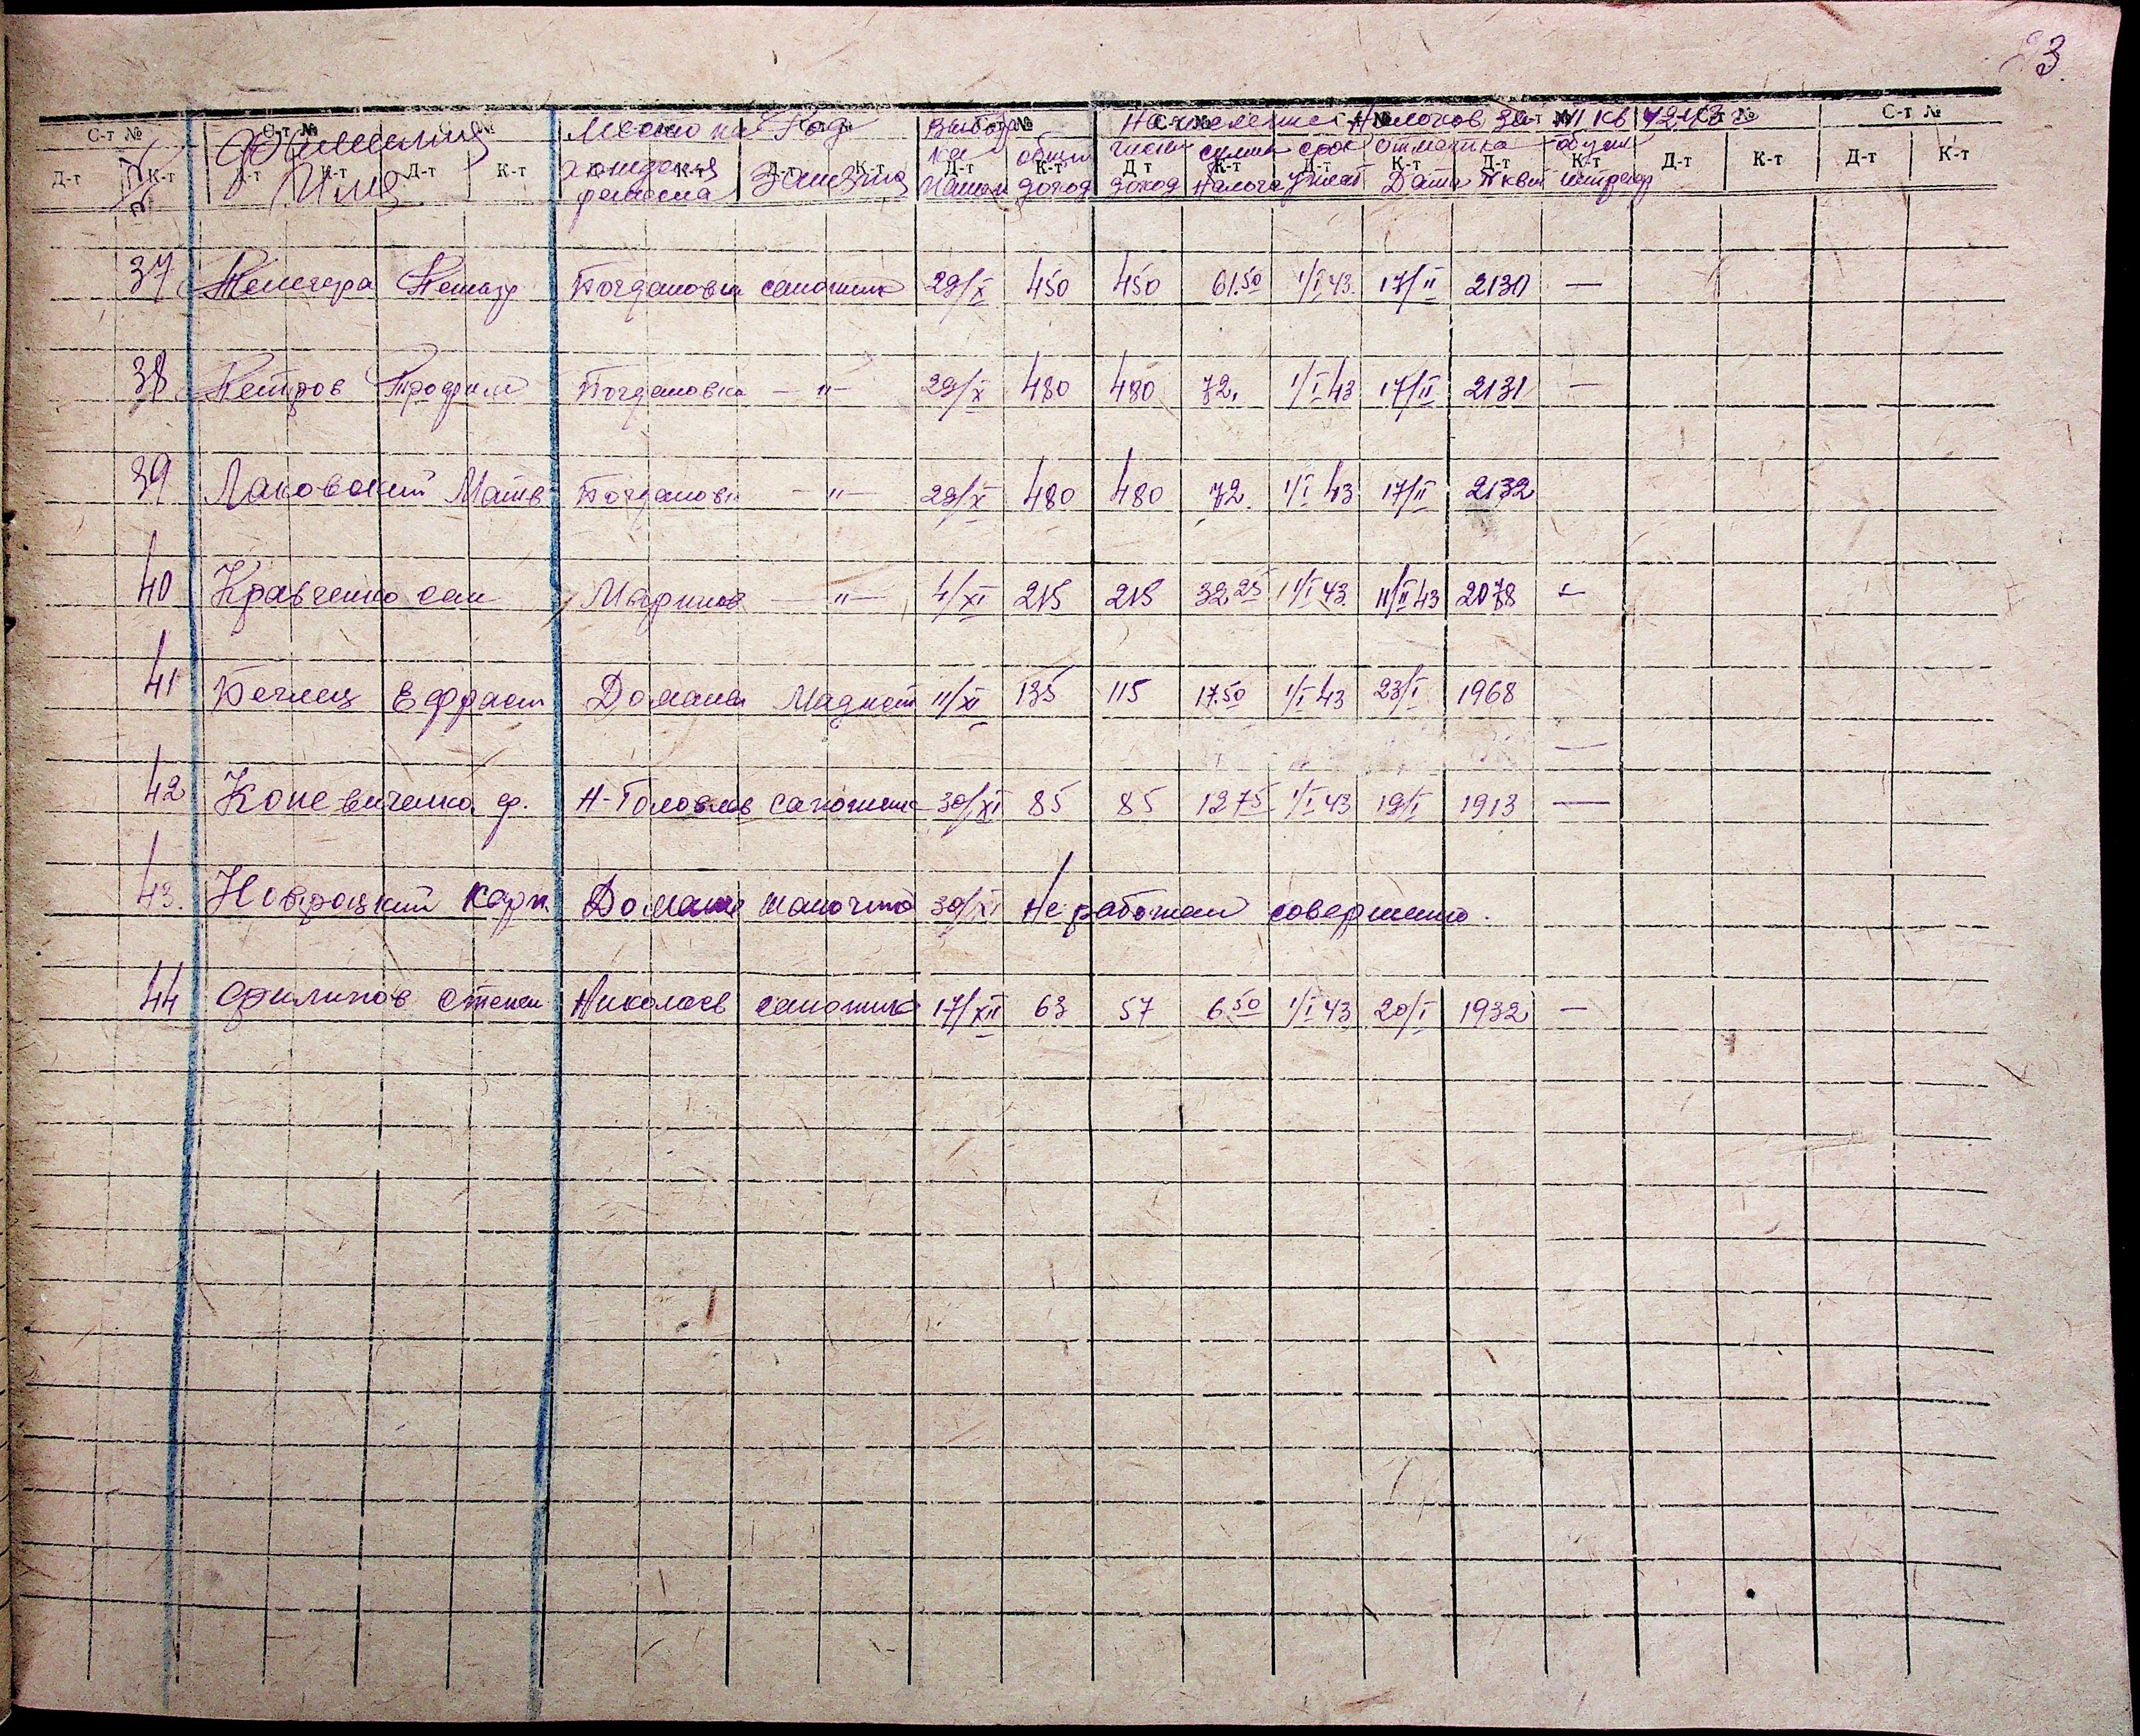 3.
С-т № С-т № С-т № С-т № С-т № С-т № С-т № С-т № С-т № С-т № С-т №
Фамилия Место на Род Выбор Начисление Налогов за IV кв 1942 г
Д-т К-т Д-т К-т Д-т К-т Д-т К-т Д-т К-т Д-т К-т Д-т К-т Д-т К-т Д-т К-т Д-т К-т Д-т К-т
№ Имя хождения Занятия ка общий чистый сумма срок отметка
ремесла доход доход налога уплат Дата № квит штраф
37 Петр Богдановка сапожник 29/X 450 450 61.50 1/I 43 17/II 2130 —
38 Петров Трофим Богдановка — " — 29/X 480 480 72. 1/I 43 17/II 2131 —
39 Лаковский Матв Богдановк — " — 29/X 480 480 72. 1/I 43 17/II 2132
40 Кравченко сам Маринов — " — 4/XI 215 215 32.25 1/I 43 11/II 43 2078 —
41 Беглец Ефрем Доманев 11/XI 135 115 17.50 1/I 43 23/I 1968 —
42 Коневиченко ф. Н-Головлев сапожник 30/XI 85 85 12 75 1/I 43 19/I 1913 —
43. Новроцкий Карп Доманев шапочник 30/XI Не работал совершенно.
44 Филипов Степан Николаев сапожник 17/XII 63 57 6 50 1/I 43 20/I 1932 —